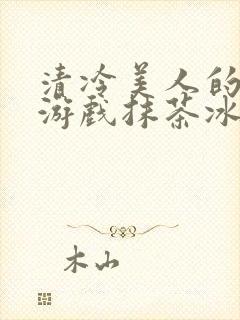 清冷美人的
游戏抹茶冰
木山